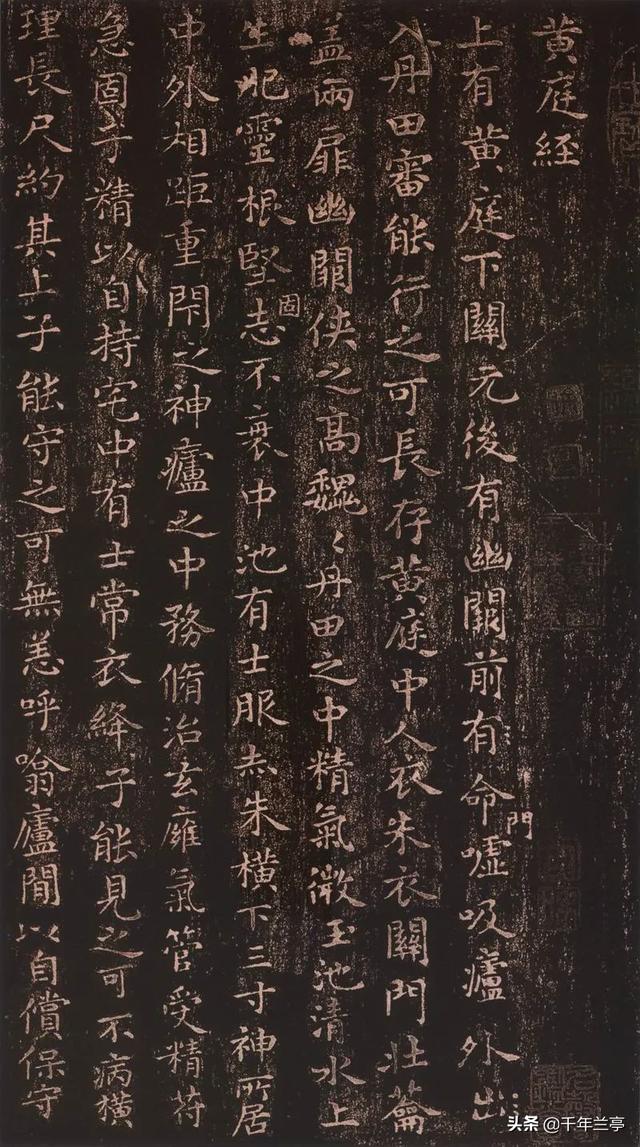 黄庭經
上有黄庭下關元後有幽闕前有命門嘘吸廬外出
入丹田審能行之可長存黄庭中人衣朱衣關門壮籥
盖兩扉幽闕侠之高魏〻丹田之中精氣微玉池清水上
生肥靈根堅固志不衰中池有士服赤朱横下三寸神所居
中外相距重閇之神廬之中務脩治玄廱氣管受精符
急固子精以自持宅中有士常衣絳子能見之可不病横
理長尺約其上子能守之可無恙呼噏廬間以自償保守
头条 @千年兰亭